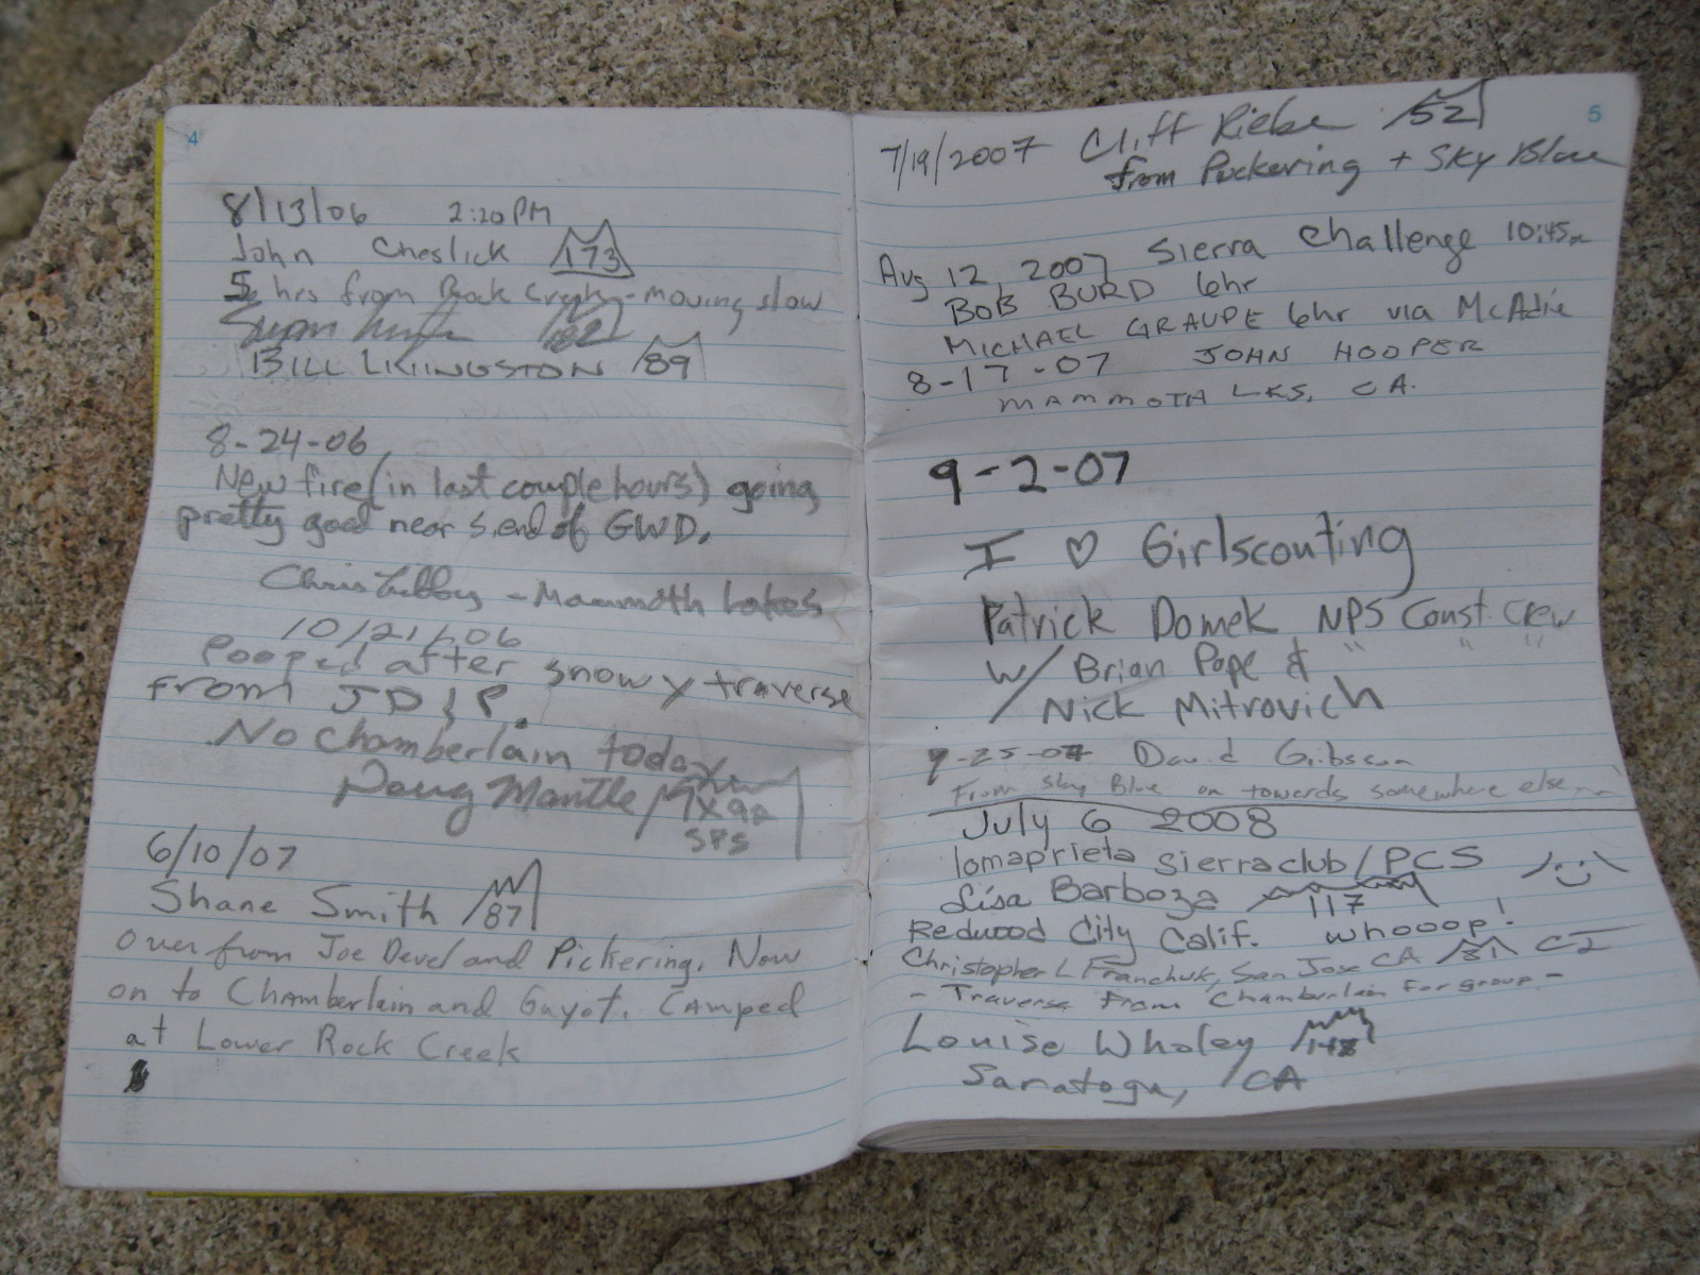 4
8/13/06 2:20 PM
John Cheslick 173
5 hrs from Rock Creek - moving slow
BILL LIVINGSTON 89
8-24-06
New fire (in last couple hours) going
pretty good near s. end of GWD.
Chris - Mammoth Lakes
10/21/06
Pooped after snowy traverse
from JD & P.
No Chamberlain today
Doug Mantle
SPS
6/10/07
Shane Smith 87
Over from Joe Devel and Pickering. Now
on to Chamberlain and Guyot. Camped
at Lower Rock Creek
5
7/19/2007 Cliff Riebe 52
from Pickering + Sky Blue
Aug 12, 2007 Sierra Challenge 10:45a
BOB BURD 6hr
MICHAEL GRAUPE 6hr via McAdie
8-17-07 JOHN HOOPER
MAMMOTH LKS, CA.
9-2-07
I ♡ Girlscouting
Patrick Domek NPS Const. Crew
w/ Brian Pope & " " "
/ Nick Mitrovich
9-25-07 David Gibson
From Sky Blue on towards somewhere else...
July 6 2008
lomaprieta sierraclub/PCS
Lisa Barboza 117
Redwood City Calif. whooop!
Christopher L Franchuk, San Jose CA 81 C2
- Traverse from Chamberlain for group -
Louise Wholey 148
Saratoga, CA